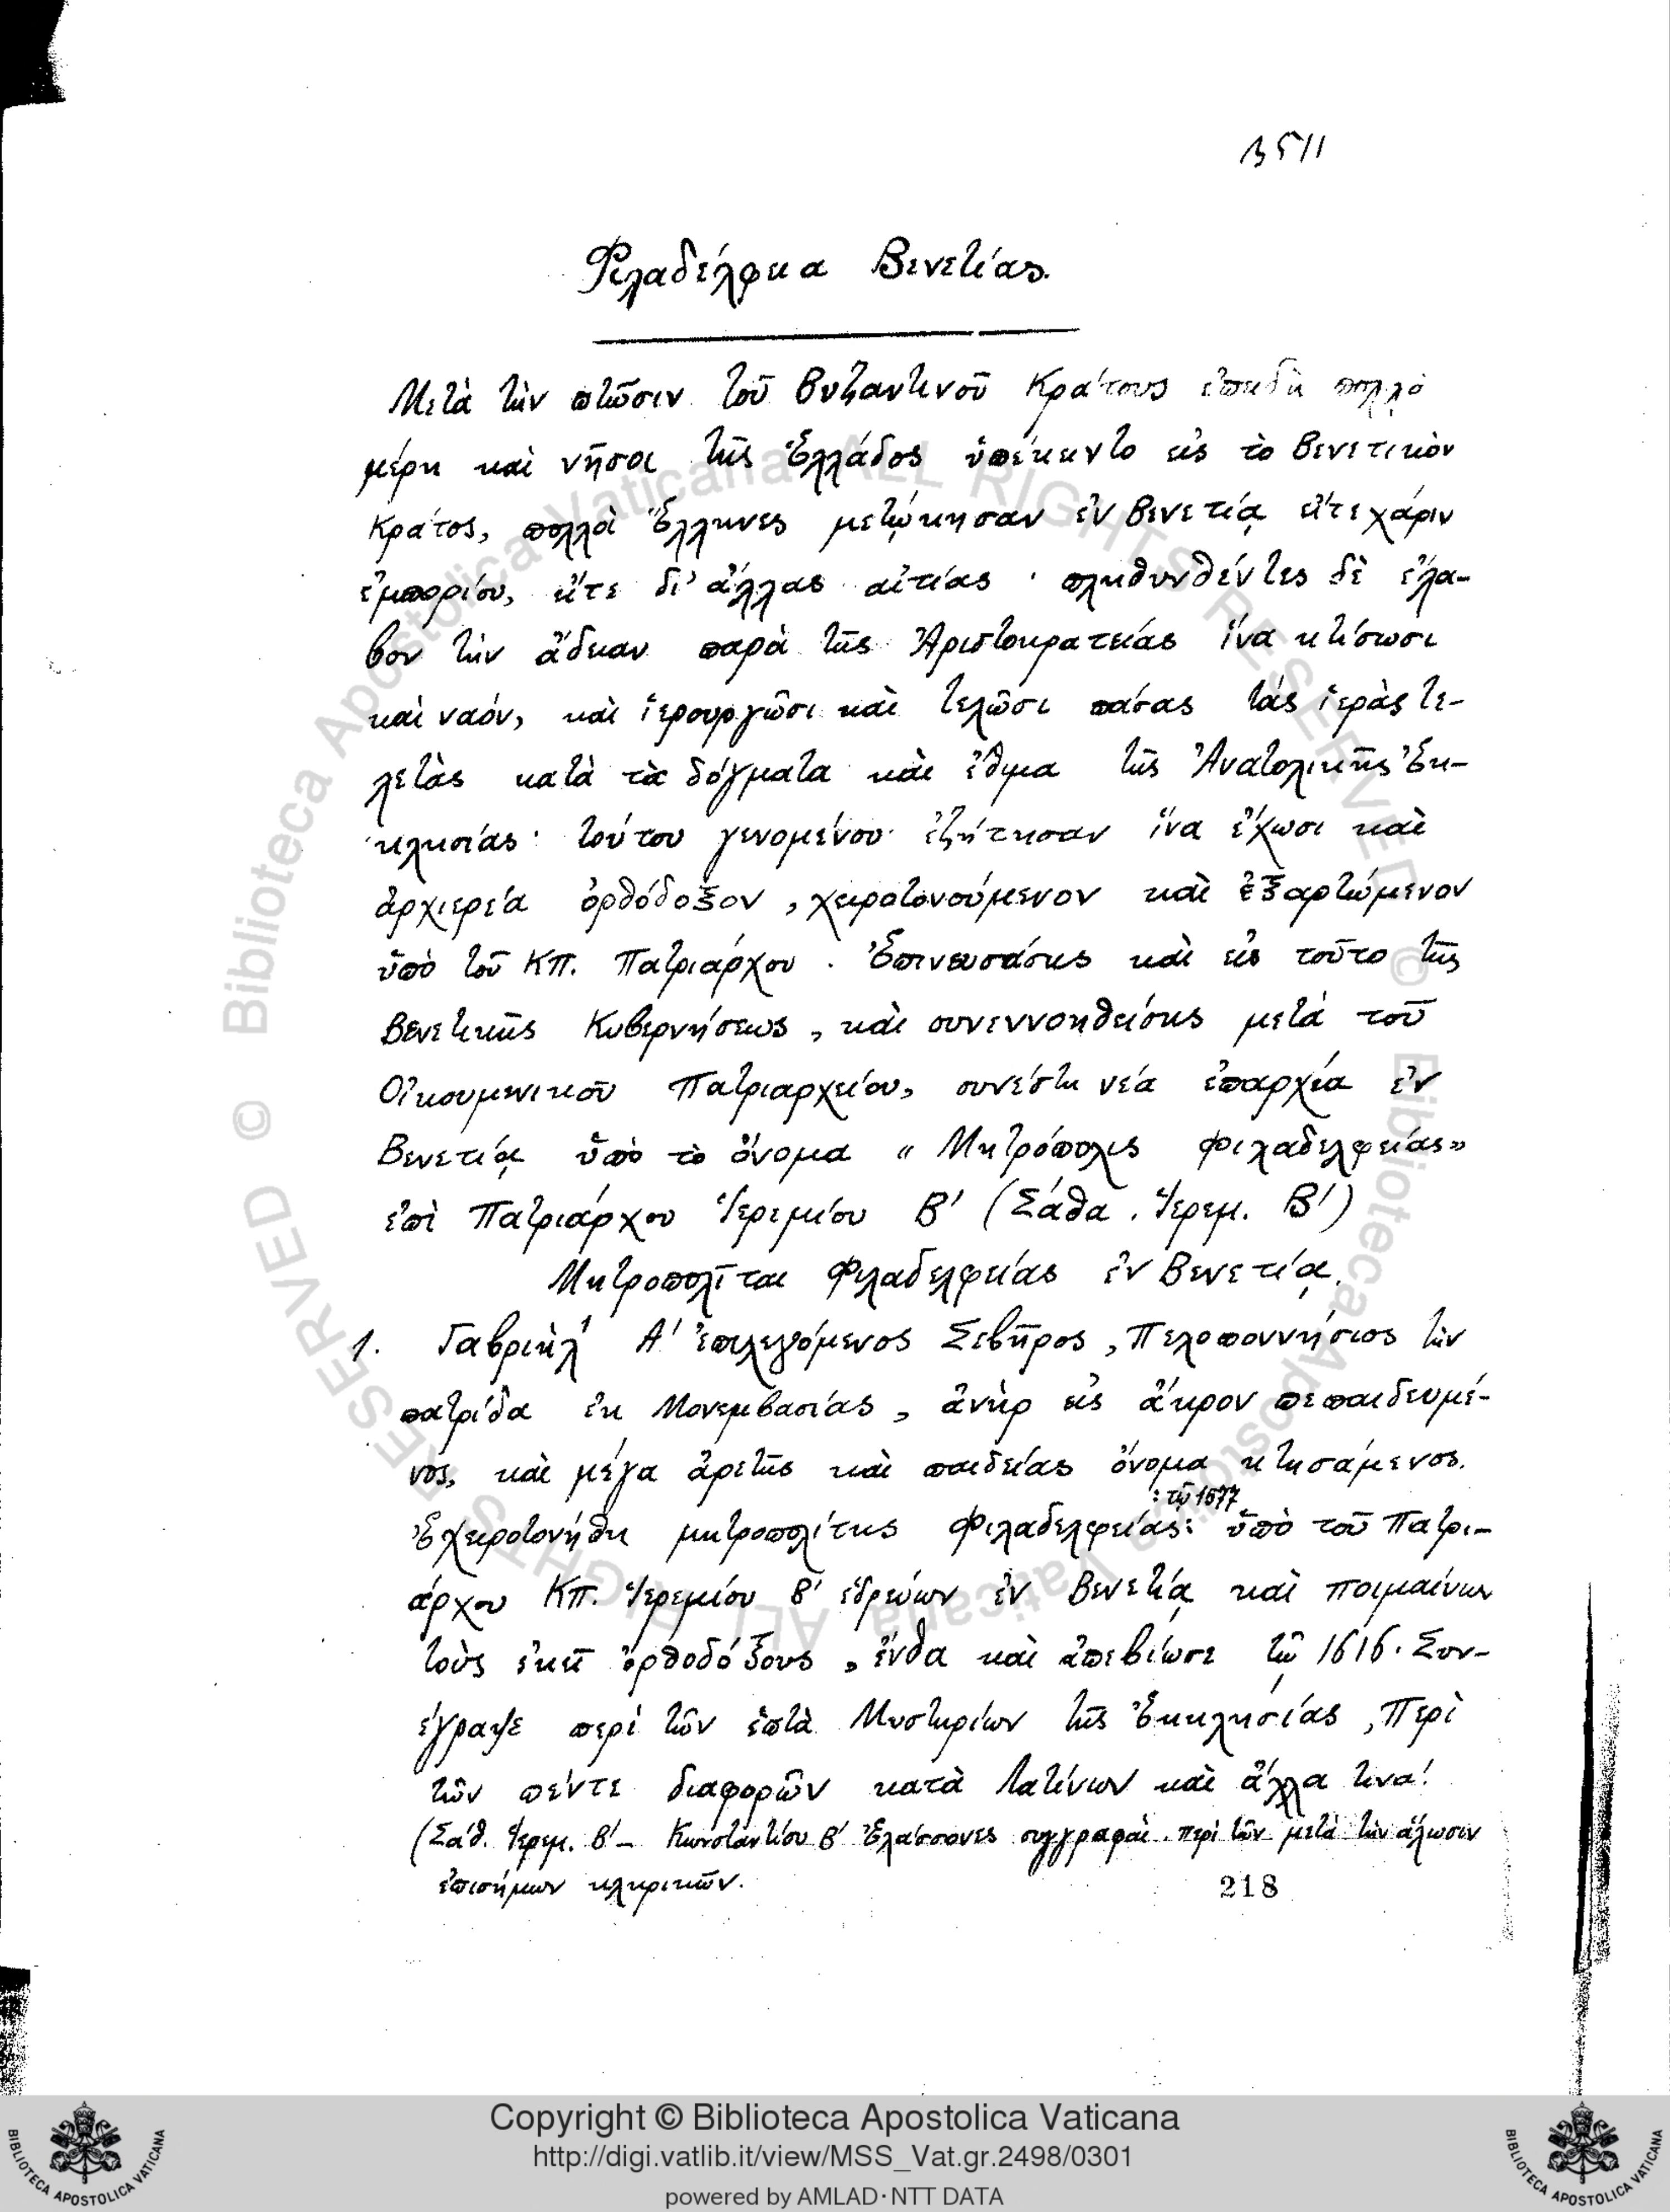 Φιλαδέλφεια Βενετίας.
Μετὰ τὴν πτῶσιν τοῦ Βυζαντινοῦ Κράτους ἐπειδὴ πολλὰ
μέρη καὶ νῆσοι τῆς Ἑλλάδος ὑπέκειντο εἰς τὸ Βενετικὸν
Κράτος, πολλοὶ Ἕλληνες μετῴκησαν ἐν Βενετίᾳ εἴτε χάριν
ἐμπορίου, εἴτε δι' ἄλλας αἰτίας · πληθυνθέντες δὲ ἔλα-
βον τὴν ἄδειαν παρὰ τῆς Ἀριστοκρατείας ἵνα κτίσωσι
καὶ ναόν, καὶ ἱερουργῶσι καὶ τελῶσι πάσας τὰς ἱερὰς τε-
λετὰς κατὰ τὰ δόγματα καὶ ἔθιμα τῆς Ἀνατολικῆς Ἐκ-
κλησίας · τούτου γενομένου ἐζήτησαν ἵνα ἔχωσι καὶ
ἀρχιερέα ὀρθόδοξον, χειροτονούμενον καὶ ἐξαρτώμενον
ὑπὸ τοῦ ΚΠ. Πατριάρχου. Ἐπινευσάσης καὶ εἰς τοῦτο τῆς
Βενετικῆς Κυβερνήσεως, καὶ συνεννοηθείσης μετὰ τοῦ
Οἰκουμενικοῦ Πατριαρχείου, συνέστη νέα ἐπαρχία ἐν
Βενετίᾳ ὑπὸ τὸ ὄνομα « Μητρόπολις Φιλαδελφείας»
ἐπὶ Πατριάρχου Ἱερεμίου Β' (Σάθα. Ἱερεμ. Β')
Μητροπολῖται Φιλαδελφείας ἐν Βενετίᾳ.
1. Γαβριὴλ Α' ἐπιλεγόμενος Σεβῆρος, Πελοποννήσιος τὴν
πατρίδα ἐκ Μονεμβασίας, ἀνὴρ εἰς ἄκρον πεπαιδευμέ-
νος, καὶ μέγα ἀρετῆς καὶ παιδείας ὄνομα κτησάμενος.
: τῷ 1577
Ἐχειροτονήθη μητροπολίτης Φιλαδελφείας: ὑπὸ τοῦ Πατρι-
άρχου ΚΠ. Ἱερεμίου Β' ἑδρεύων ἐν Βενετίᾳ καὶ ποιμαίνων
τοὺς ἐκεῖ ὀρθοδόξους, ἔνθα καὶ ἀπεβίωσε τῷ 1616. Συν-
έγραψε περὶ τῶν ἑπτὰ Μυστηρίων τῆς Ἐκκλησίας, Περὶ
τῶν πέντε διαφορῶν κατὰ Λατίνων καὶ ἄλλα τινα!
(Σάθ. Ἱερεμ. Β' – Κωνσταντίου Β' Ἐλάσσονες συγγραφαὶ. περὶ τῶν μετὰ τὴν ἅλωσιν
ἐπισήμων κληρικῶν.
218
© Biblioteca Apostolica Vaticana ALL RIGHTS RESERVED
© Biblioteca Apostolica Vaticana ALL RIGHTS RESERVED
Copyright © Biblioteca Apostolica Vaticana
http://digi.vatlib.it/view/MSS_Vat.gr.2498/0301
powered by AMLAD·NTT DATA
BIBLIOTECA APOSTOLICA VATICANA
BIBLIOTECA APOSTOLICA VATICANA